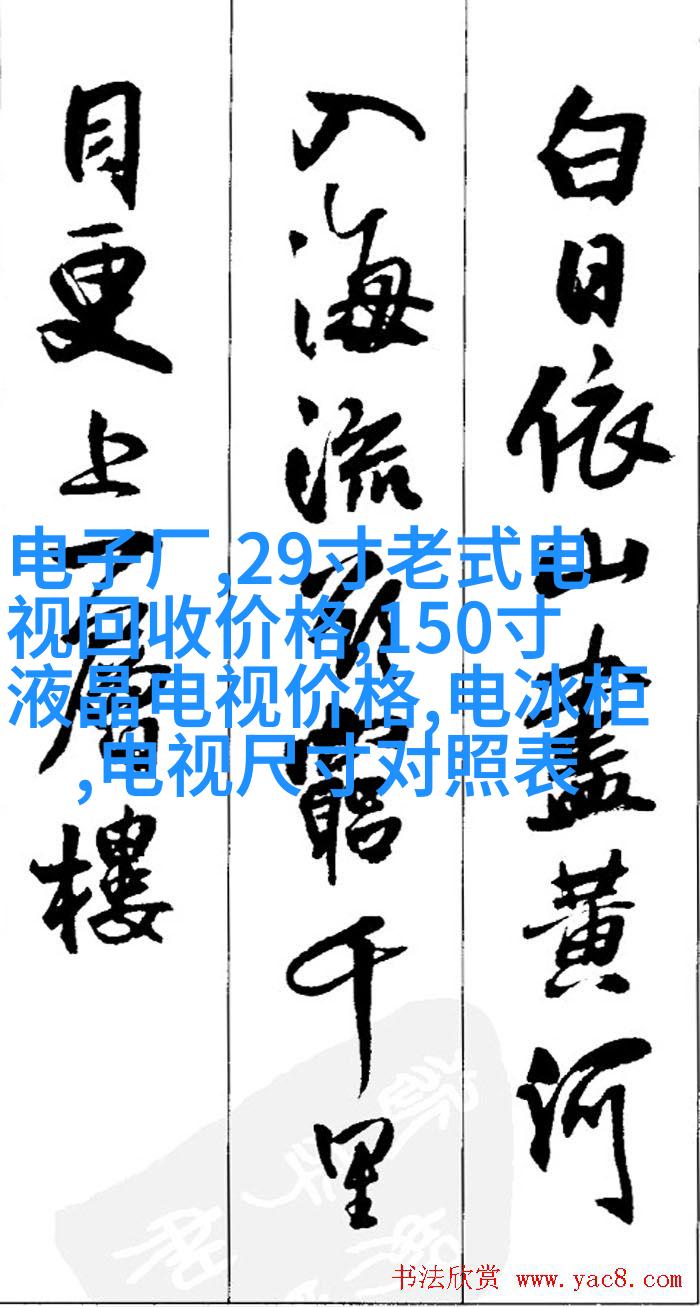 白日依山盡黄河
入海流欲窮千里
目更上一層樓
电子厂,29寸老式电
视回收价格,150寸
液晶电视价格,电冰柜
,电视尺寸对照表
书法欣赏 www.yac8.com